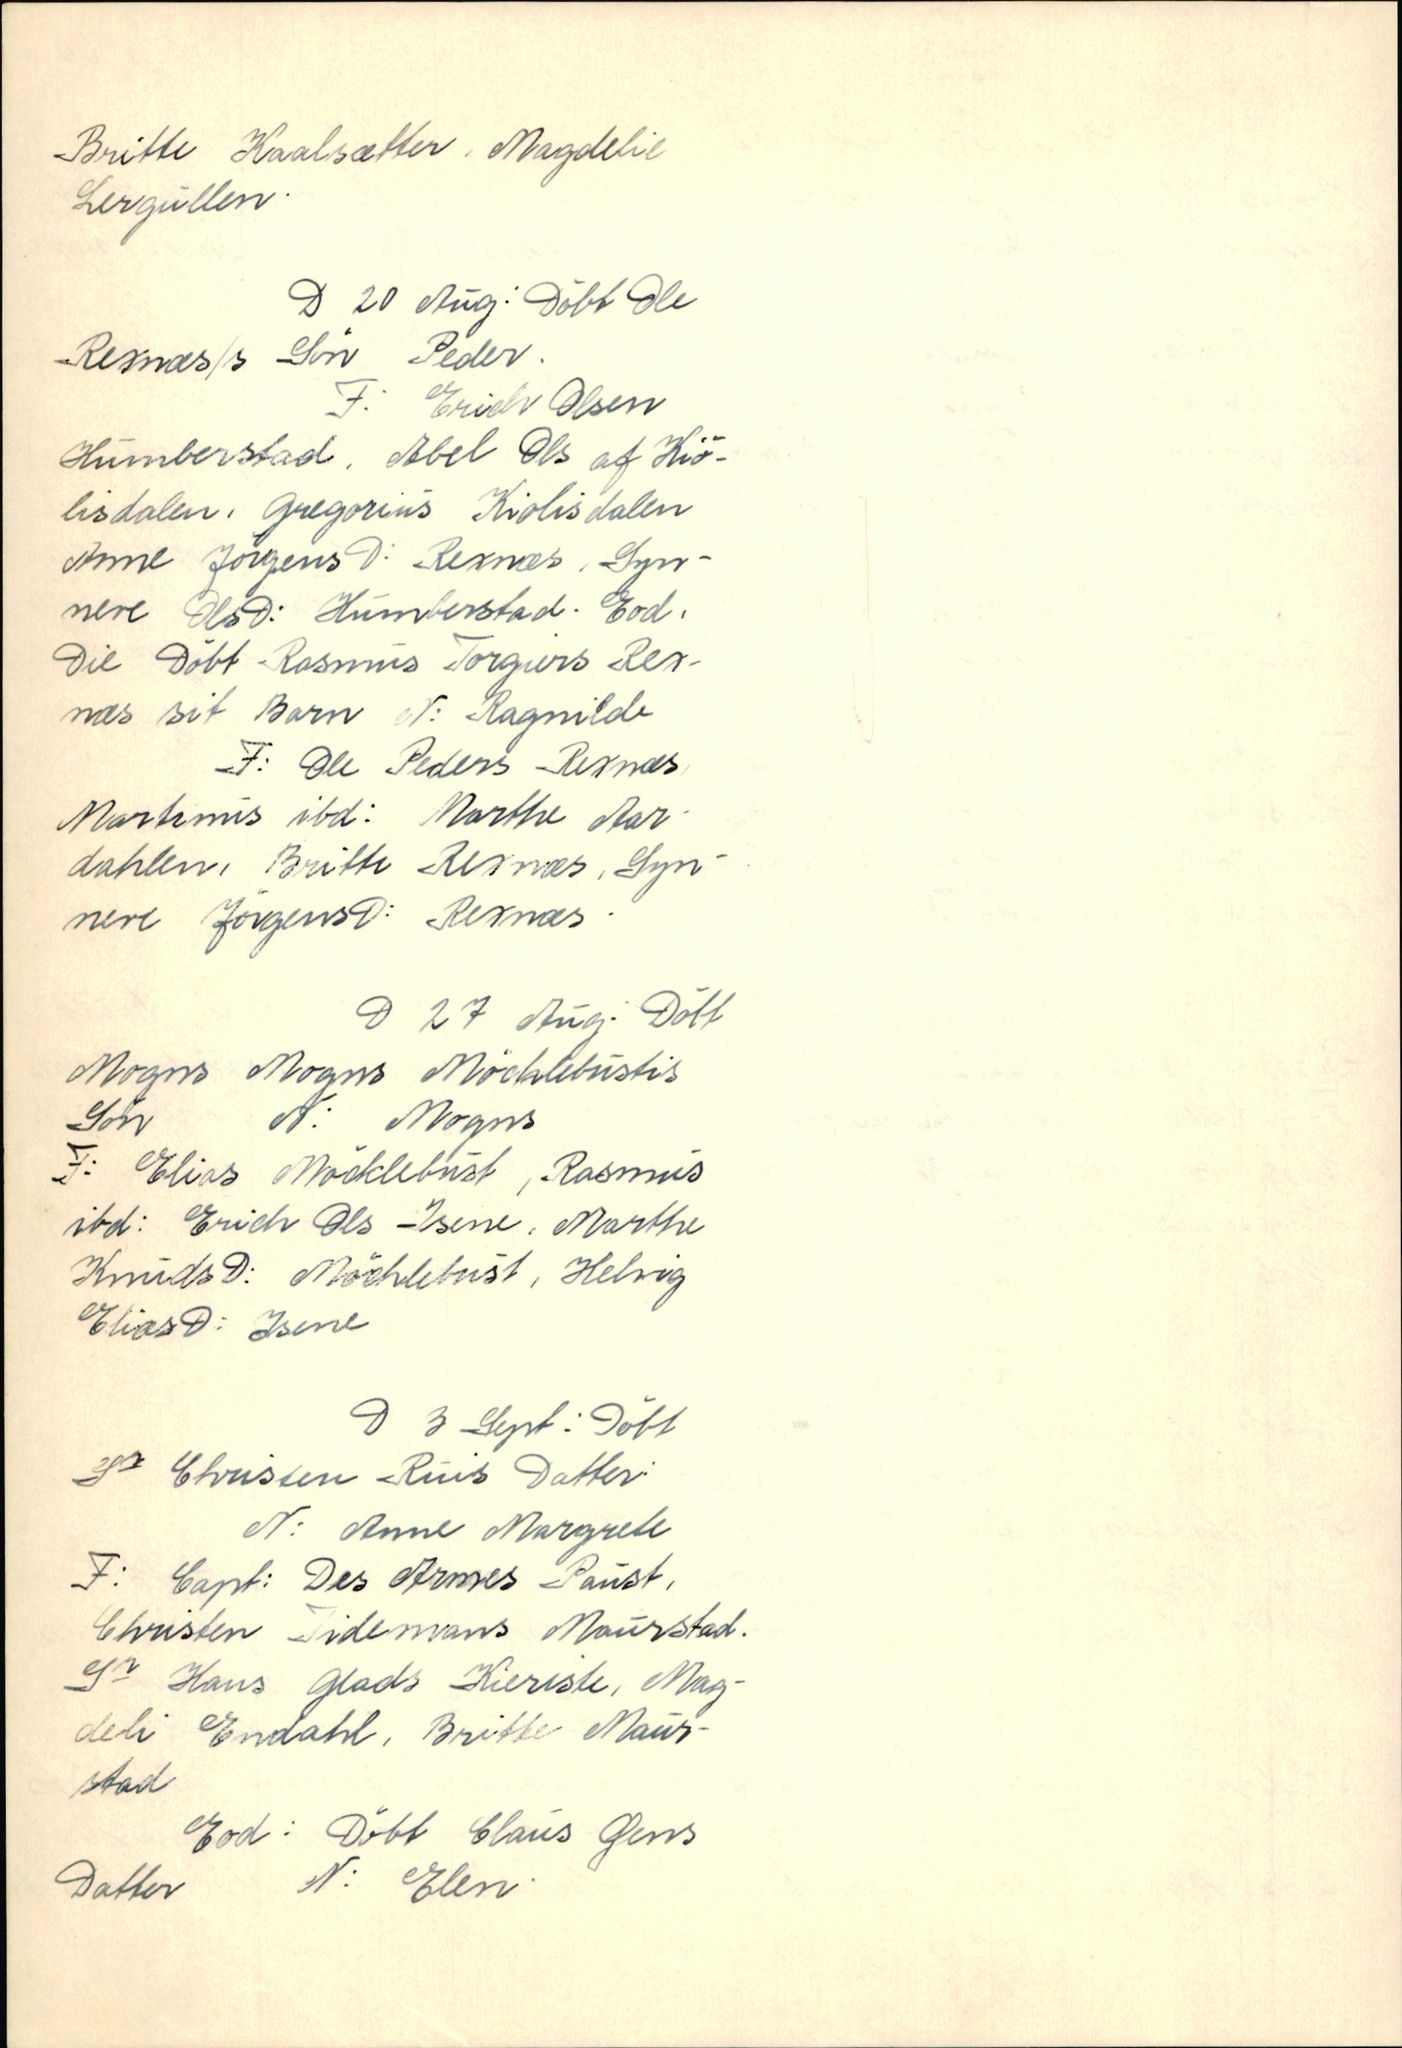 Britte Kaalsætter, Magdelie
Lergullen.
D 20 Aug: Döbt Ole
Rexnæs/s Sön Peder.
F: Erich Olsen
Humberstad, Abel Ols af Kiö-
lisdalen, Gregorius Kiolisdalen
Anne JörgensD: Rexnæs, Syn-
nere OlsD: Humberstad. Eod.
Die Döbt Rasmus Torgiers Rex-
næs sit Barn N: Ragnilde
F: Ole Peders Rexnæs,
Martinus ibd: Marthe Aar-
dahlen, Britte Rexnæs, Syn-
nere JörgensD: Rexnæs.
D 27 Aug: Döbt
Mogns Mogns Möchlebustis
Sön N: Mogns
F: Elias Möcklebust, Rasmus
ibd: Erich Ols Isene, Marthe
KnudsD: Möchlebust, Helvig
EliasD: Isene
D 3 Sept: Döbt
Sr Christen Ruis Datter:
N: Anne Margrete
F: Capt: Des Armes Paust,
Christen Tidemans Maurstad.
Sr Hans Glads Kieriste, Mag-
deli Endahl, Britte Maur-
stad
Eod: Döbt Claus Gens
Datter N: Elen.